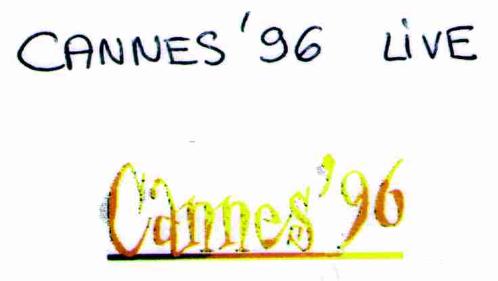 CANNES '96 LiVE
Cannes '96